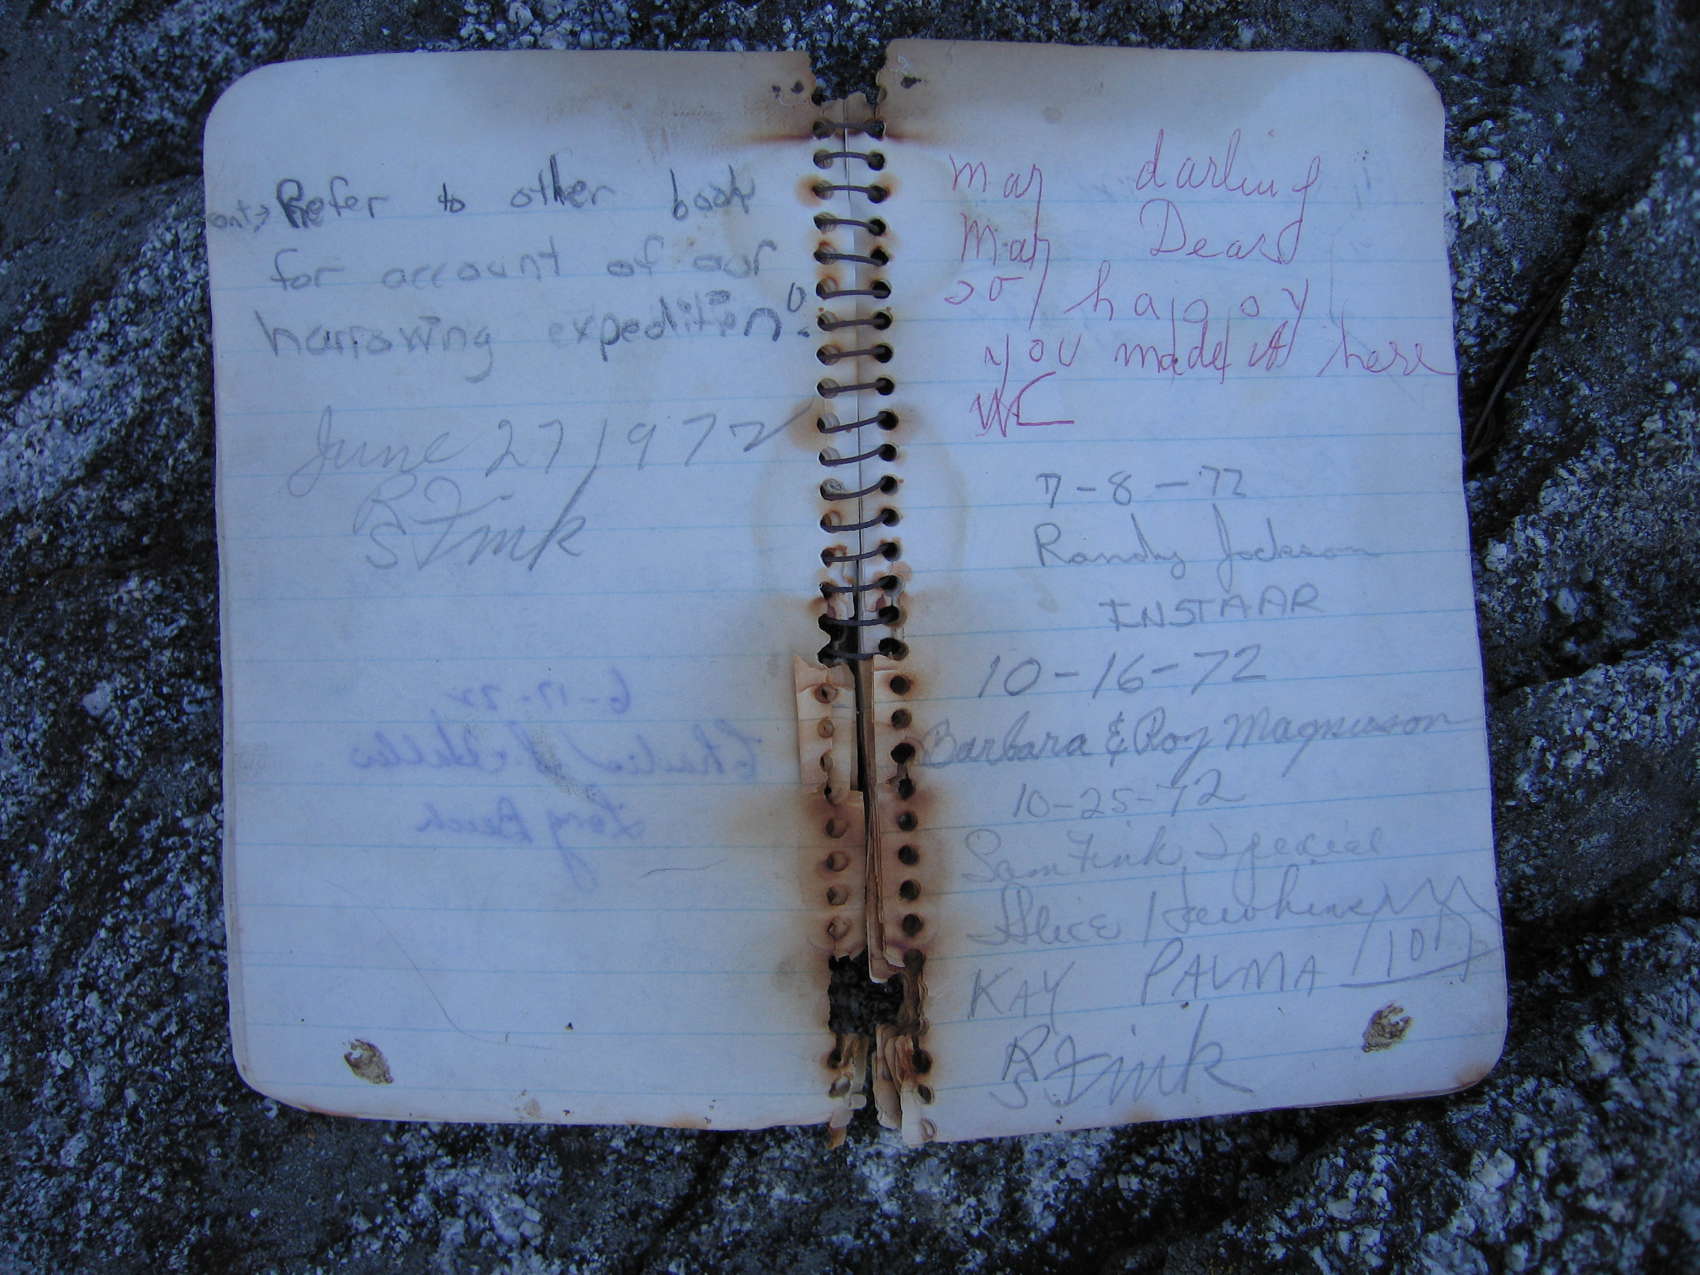 Refer to other book
for account of our
harrowing expedition!
June 27 1972
RS Fink
6-17-72
Long Beach
May darling
May Dear
so happy
you made it here
7-8-72
Randy Jackson
INSTAAR
10-16-72
Barbara & Roy Magnuson
10-25-72
Sam Fink Special
Alice Hawkins
KAY PALMA
RS Fink